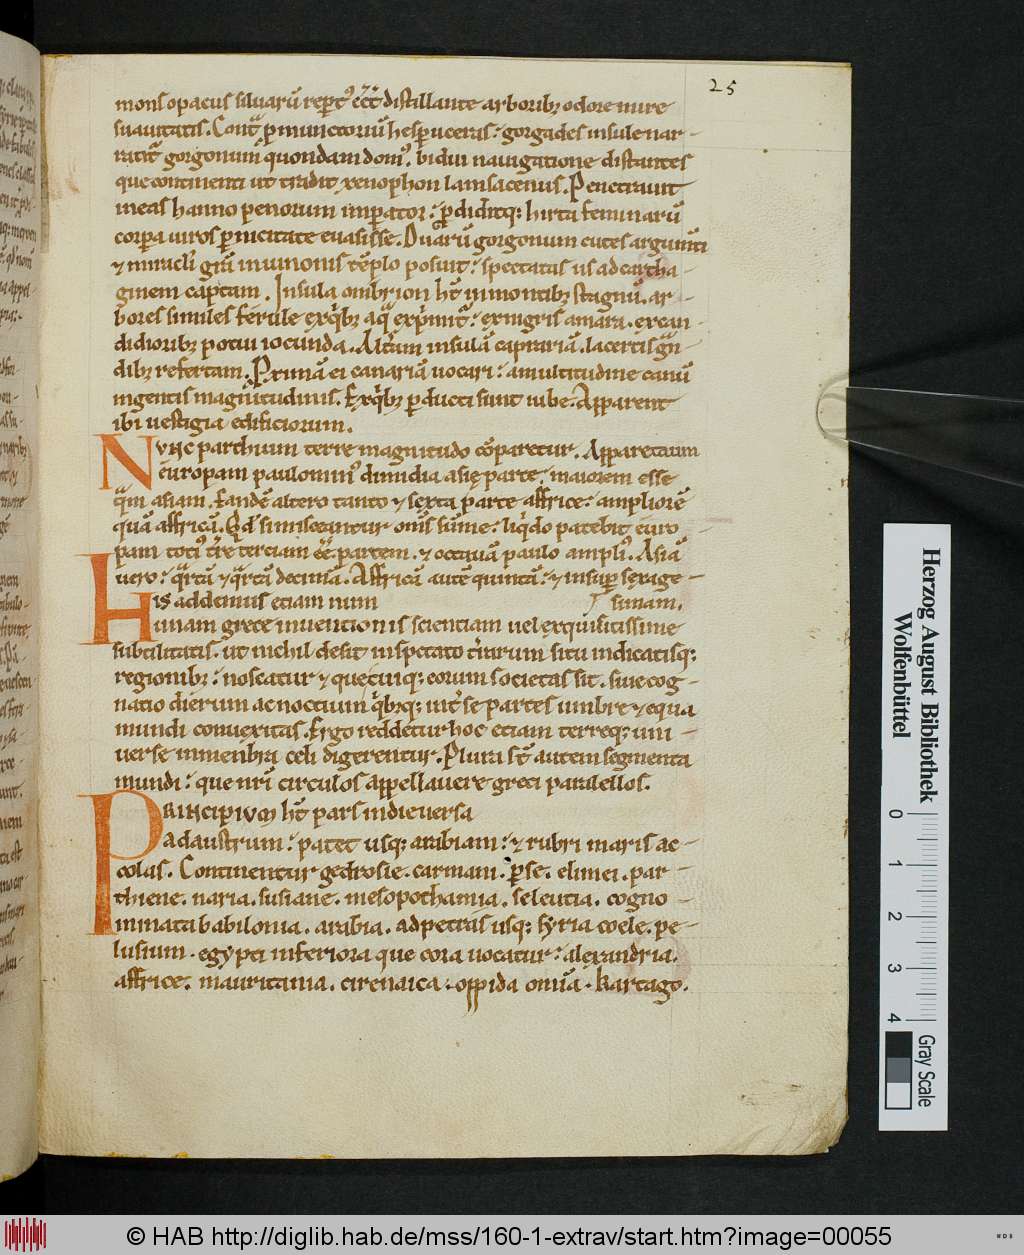 25
mons opacus siluarū rep̄t᷒ ēēt distillante arborib; odore mire
suauitatis. Cont̄ p̄munctoriū hesp̄uceras. gorgades insule nar-
rant̄ gorgonum quondam dom᷒. bidui nauigatione distantes
que continenti ut tradit xenophon lamsacenus. Penetrauit
in eas hanno penorum imp̄ator. p̄didit q; hirta feminarū
corp̄a uiros p̄nicitate euasisse. Duarū gorgonum cutes argum̄ti
& miracli gr̄a in iunonis tēplo posuit. spectatas us ad cartha-
ginem captam. Insula ombrion ht̄ in montib; stagnū. ar-
bores similes ferule ex qͥb; aq̄ exp̄mit᷒. ex nigris amara. ex can-
didiorib; potui iocunda. Alt̄am insulā caprariā. lacertis gn̄-
dib; refertam. Proximā ei canariā uocari. a multitudine canū
ingentis magnitudinis. Ex qͥb; p̄ducti sunt iube. Apparent
ibi uestigia edificiorum.
Nunc partium terre magnitudo cōparetur. Apparet tum
europam paulo min᷒ dimidia asię parte maiorem esse
qͣm asiam. Eandē altero tanto & sexta parte affrice. ampliorē
quā affricā. Qd̄ si misceantur om̄s sūme. liqͥdo patebit euro
pam toti᷒ t̄re terciam ēē partem. & octauā paulo ampli᷒. Asiā
uero. qͣrtā & qͣrtā decimā. Affricā autē quintā. & insup̄ sexage-
simam.
His addemus etiam num
unam grece inuentionis scientiam uel exquisitissime
subtilitatis. ut nichil desit in spectato t̄rarum situ indicatisq;
regionib;. noscatur & que cuiq; eorum societas sit. siue cog-
natio dierum ac noctium qͥb;q; int̄ se partes umbre & equa
mundi conuexitas. Ergo reddetur hoc etiam terreq; uni-
uerse in menbra celi digerentur. Plura st̄ autem segmenta
mundi. que nr̄i circulos appellauere greci parallelos.
Principium ht̄ pars indie uersa
ad austrum. patet usq; arabiam. & rubri maris ac-
colas. Continentur gedrosie. carmani. p̄se. elimei. par-
thiene. naria. susiane. mesopothamia. seleucia. cogno-
minata babilonia. arabia. ad petras usq; syria coele. pe-
lusium. egypti inferiora que cora uocatur. alexandria.
affrice. mauritania. cirenaica. oppida omīa. kartago.
Herzog August Bibliothek
Wolfenbüttel
0 1 2 3 4
Gray Scale
© HAB http://diglib.hab.de/mss/160-1-extrav/start.htm?image=00055